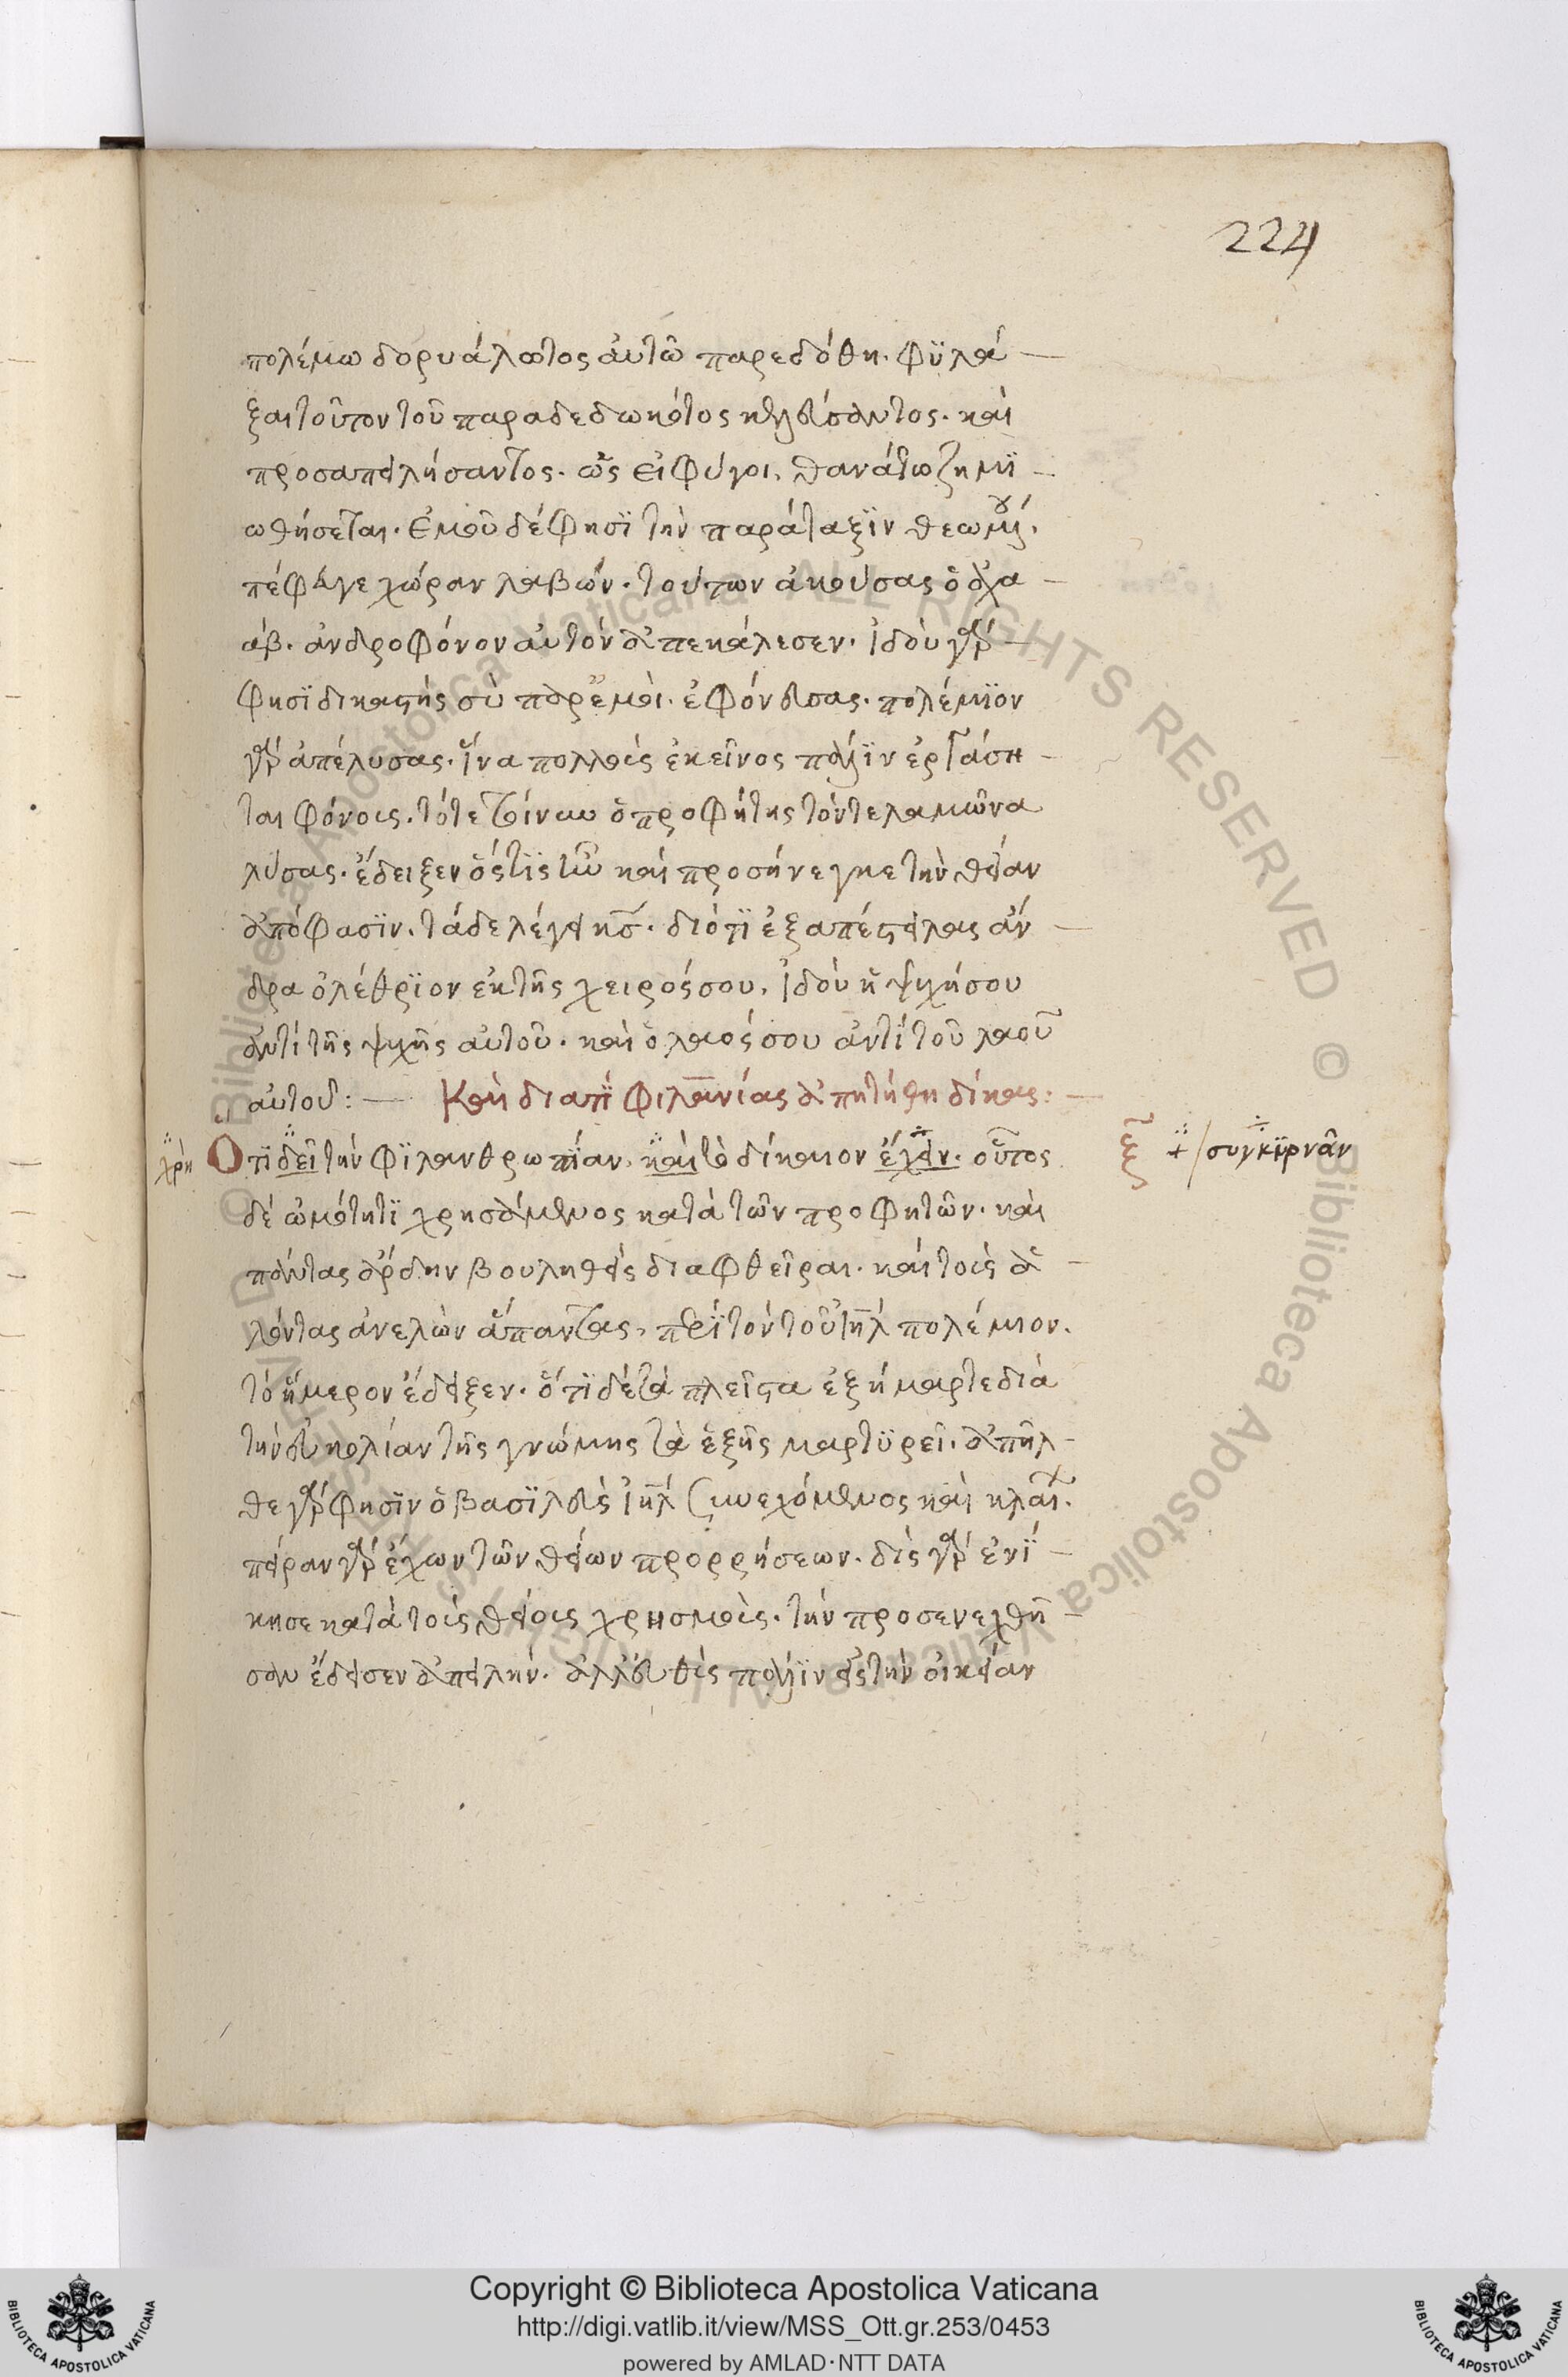 224
πολέμω δορυάλωτος αὐτῶ παρεδόθη. φϋλά
ξαι τοῦτον τοῦ παραδεδωκότος κελεύσαντος. καὶ
προσαπειλήσαντος. ὡς εἰ φύγοι, θανάτω ζημϊ
ωθήσεται. ἐμοῦ δέ φησϊ τὴν παράταξϊν θεωμένου.
πέφευγε χώραν λαβών. τούτων ἀκούσας ὁ ἀχα
άβ. ἀνδροφόνον αὐτὸν ἀπεκάλεσεν. ἰδοὺ γάρ
φησϊ δικαστὴς σὺ παρ' ἐμοὶ. ἐφόνευσας. πολέμϊον
γάρ ἀπέλυσας. ἵνα πολλοὺς ἐκεῖνος πάλϊν ἐργάση
ται φόνους. τότε γίνου ὁ προφήτης τὸν τελαμῶνα
λύσας. ἔδειξεν ὅστϊς ἦν καὶ προσήνεγκε τὴν θείαν
ἀπόφασϊν. τάδε λέγει κς. διότϊ ἐξαπέστειλας ἄν
δρα ὀλέθρϊον ἐκ τῆς χειρός σου, ἰδοὺ ἡ ψυχή σου
ἀντὶ τῆς ψυχῆς αὐτοῦ. καὶ ὁ λαός σου ἀντὶ τοῦ λαοῦ
αὐτοῦ: — Καὶ διατί φιλανίας ἀπητήθη δίκας: —
χρὴ Ὅτϊ δεῖ τὴν φϊλανθρωπίαν, καὶ τὸ δίκαιον ἔχειν. οὗτος ξξ + / συγκϊρνᾶν
δὲ ὠμότητϊ χρησάμενος κατὰ τῶν προφητῶν. καὶ
πάντας ἄρδην βουληθεὶς διαφθεῖραι. καὶ τοὺς ἁ
λόντας ἀνελὼν ἅπαντας, περὶ τὸν τοῦ ἰηλ πολέμιον.
τὸ ἥμερον ἔδειξεν. ὅτϊ δὲ τὰ πλεῖστα ἐξήμαρτε διὰ
τὴν εὐκολίαν τῆς γνώμης τὰ ἑξῆς μαρτϋρεῖ. ἀπῆλ
θε γάρ φησϊν ὁ βασϊλεὺς ἰηλ συγκεχυμένος καὶ κλαί.
πεῖραν γὰρ ἔχων τῶν θείων προρρήσεων. δὶς γὰρ ἐνϊ
κησε κατὰ τοὺς θείους χρησμοὺς. τὴν προσενεχθεῖ
σαν ἔδεισεν ἀπειλήν. ἀλλ' εὐθὺς πάλϊν εἰς τὴν οἰκείαν
Copyright © Biblioteca Apostolica Vaticana
http://digi.vatlib.it/view/MSS_Ott.gr.253/0453
powered by AMLAD·NTT DATA